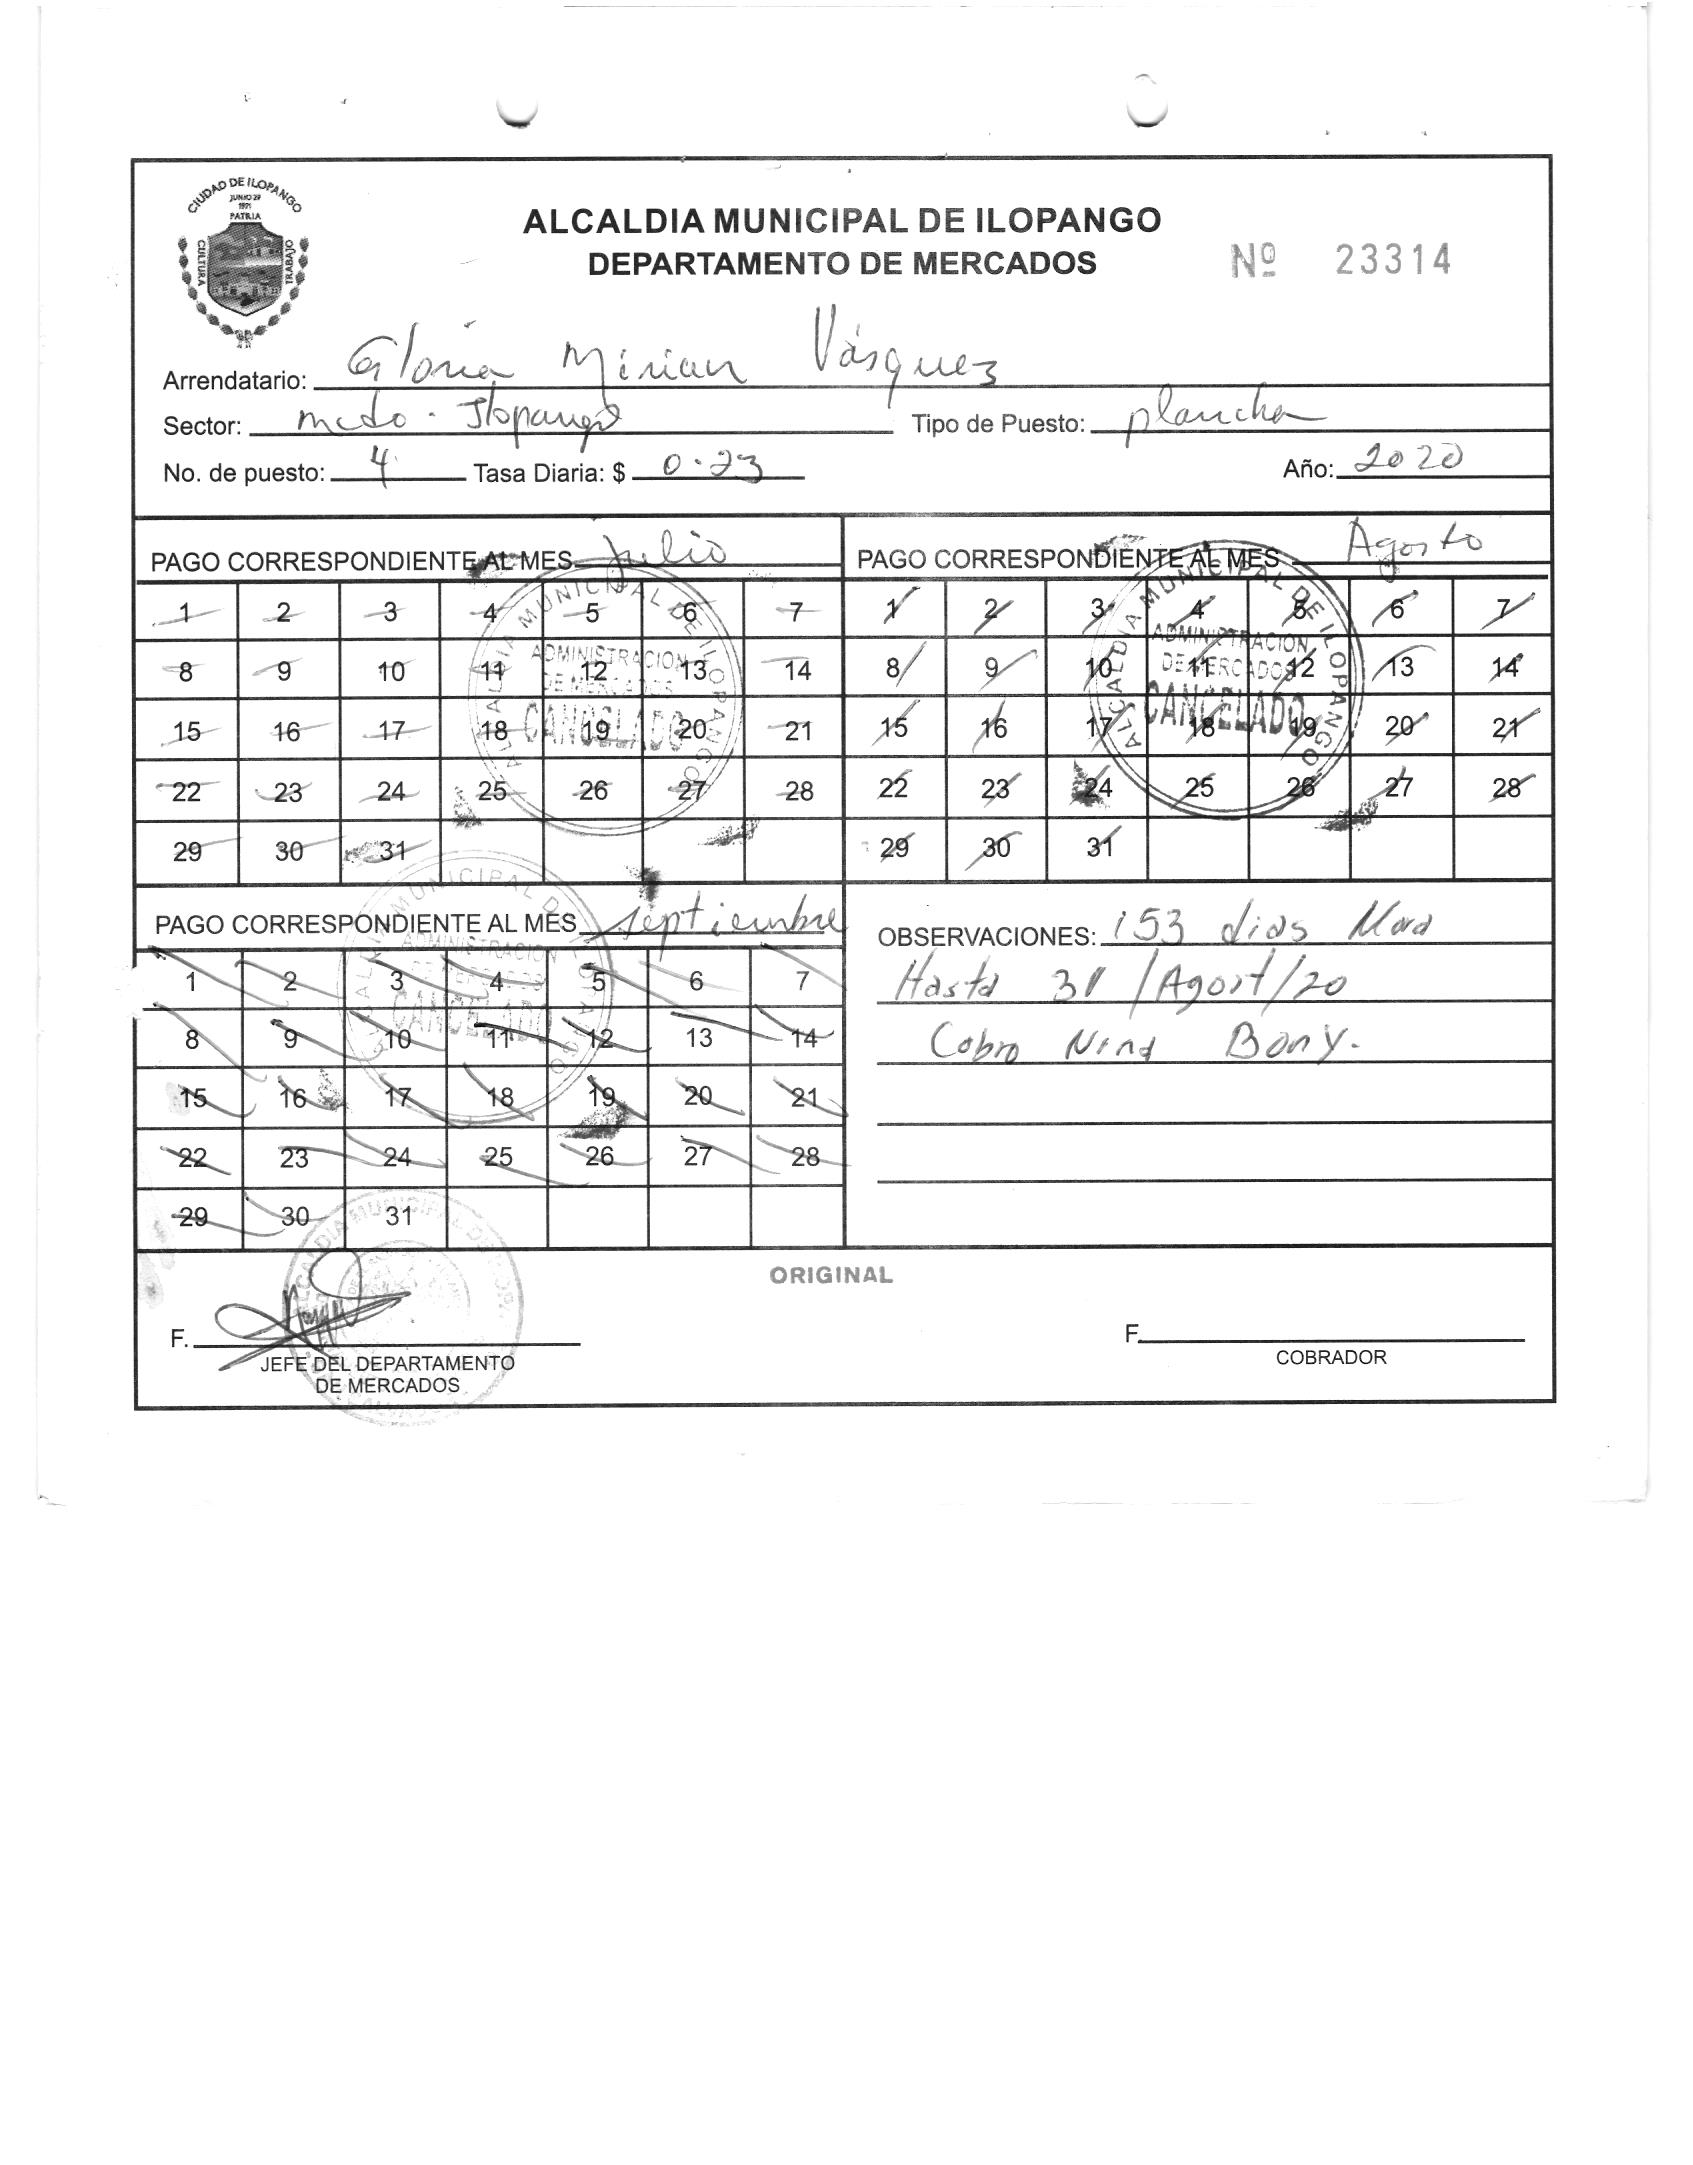 CIUDAD DE ILOPANGO
JUNIO 29
1971
PATRIA
CULTURA
TRABAJO
ALCALDIA MUNICIPAL DE ILOPANGO
DEPARTAMENTO DE MERCADOS
Nº 23314
Arrendatario: Gloria Mirian Vásquez
Sector: mcdo. Ilopango Tipo de Puesto: plancha
No. de puesto: 4 Tasa Diaria: $ 0.23 Año: 2020
PAGO CORRESPONDIENTE AL MES Julio
1 2 3 4 5 6 7
8 9 10 11 12 13 14
15 16 17 18 19 20 21
22 23 24 25 26 27 28
29 30 31
ALCALDIA MUNICIPAL DE ILOPANGO
ADMINISTRACION
DE MERCADOS
CANCELADO
PAGO CORRESPONDIENTE AL MES Agosto
1 2 3 4 5 6 7
8 9 10 11 12 13 14
15 16 17 18 19 20 21
22 23 24 25 26 27 28
29 30 31
ALCALDIA MUNICIPAL DE ILOPANGO
ADMINISTRACION
DE MERCADOS
CANCELADO
PAGO CORRESPONDIENTE AL MES septiembre
1 2 3 4 5 6 7
8 9 10 11 12 13 14
15 16 17 18 19 20 21
22 23 24 25 26 27 28
29 30 31
ALCALDIA MUNICIPAL DE ILOPANGO
ADMINISTRACION
DE MERCADOS
CANCELADO
OBSERVACIONES: 153 dias Mora
Hasta 31/Agost/20
Cobro Nina Bony.
ORIGINAL
F.
JEFE DEL DEPARTAMENTO
DE MERCADOS
F.
COBRADOR